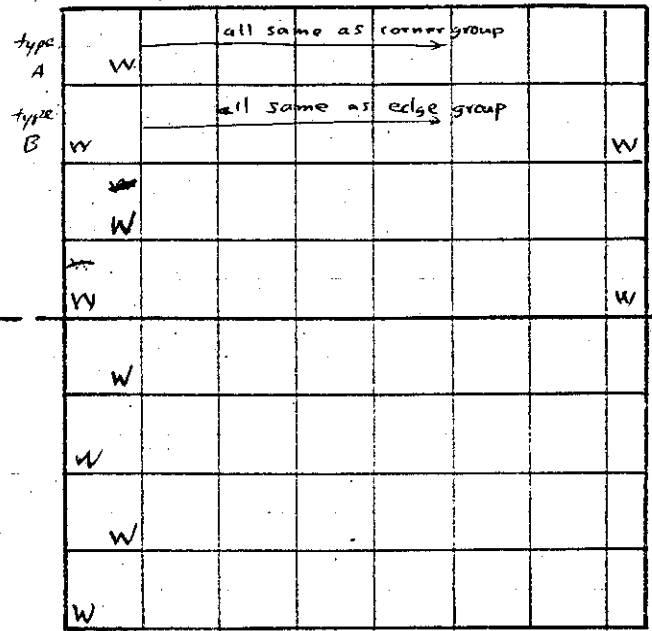 type all same as corner group
A W
type all same as edge group
B W W
W
W W
W
W
W
W